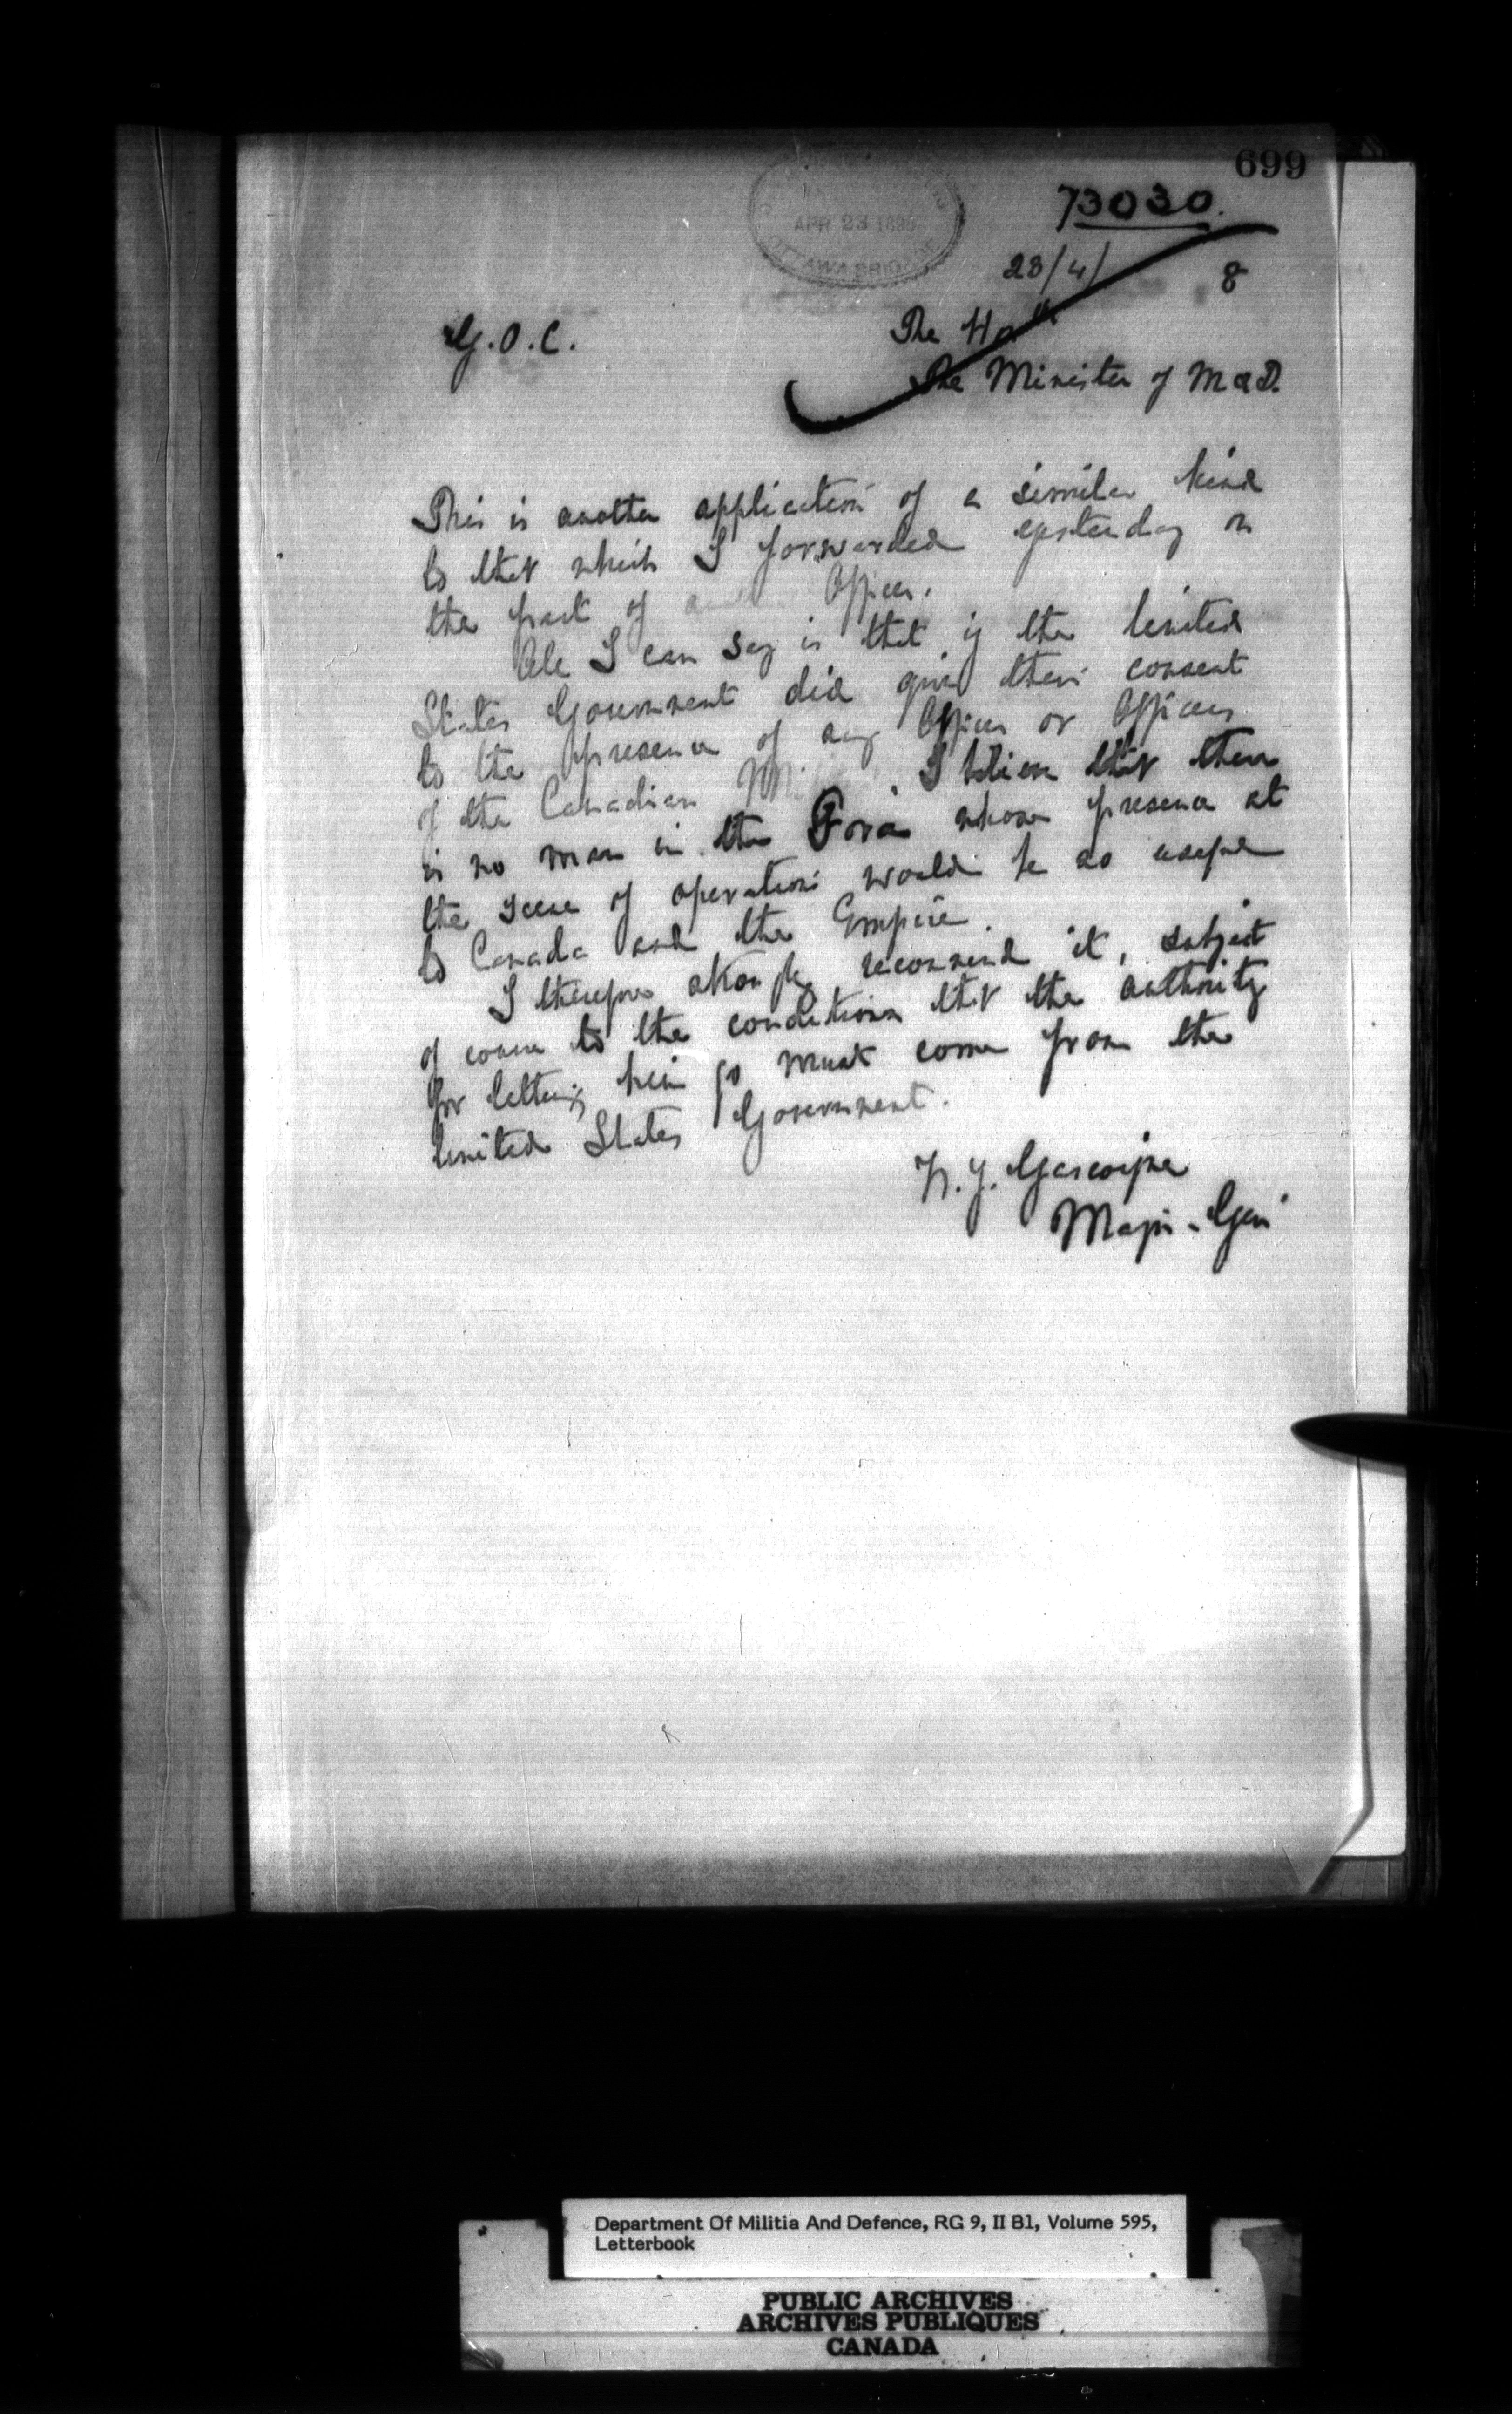 699
73030.
APR 23 189
OTTAWA BRIGADE
23/4/ 8
G.O.C.
The Hon
The Minister of M & D.
This is another application of a similar kind
to that which I forwarded yesterday on
the part of Officer.
All I can say is that if the United
States Government did give their consent
to the presence of any Officer or Officers
of the Canadian I believe that there
is no man in the Force whose presence at
the scene of operations would be so useful
to Canada and the Empire.
I therefore strongly recommend it, subject
of course to the conditions that the authority
for letting him go must come from the
United States Government.
W. J. Gascoigne
Major-Genl
Department Of Militia And Defence, RG 9, II B1, Volume 595,
Letterbook
PUBLIC ARCHIVES
ARCHIVES PUBLIQUES
CANADA